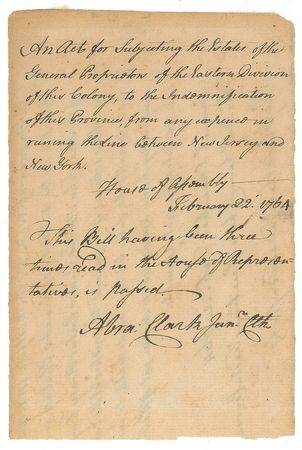 An Act for Subjecting the Estates of the
General Proprietors of the Eastern Division
of this Colony, to the Indemnification
of this Province, from any expence in
runing the Line between New Jersey and
New York.
House of Assembly
February 22. 1764
This Bill having been three
times read in the House of Represen-
tatives, is passed.
Abra. Clark Junr. Clk